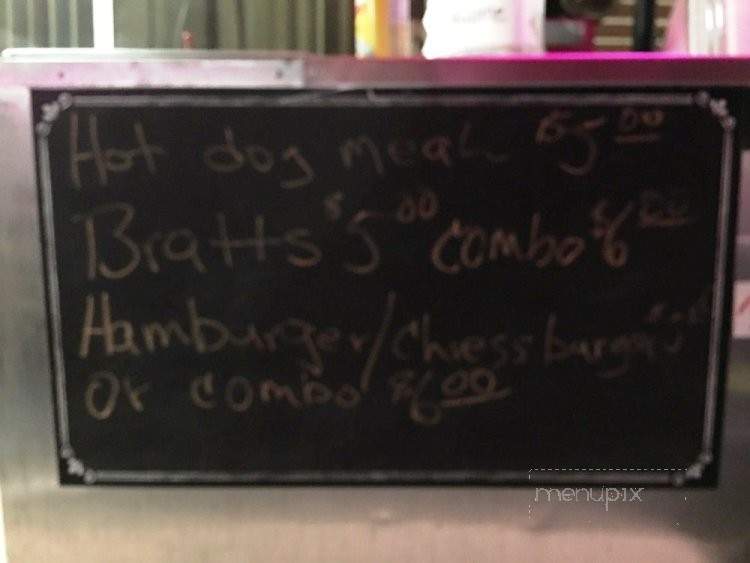 Hot dog meal $5.00
Bratts $5.00 combo $6.00
Hamburger/Chessburger
Or combo $6.00
menupix